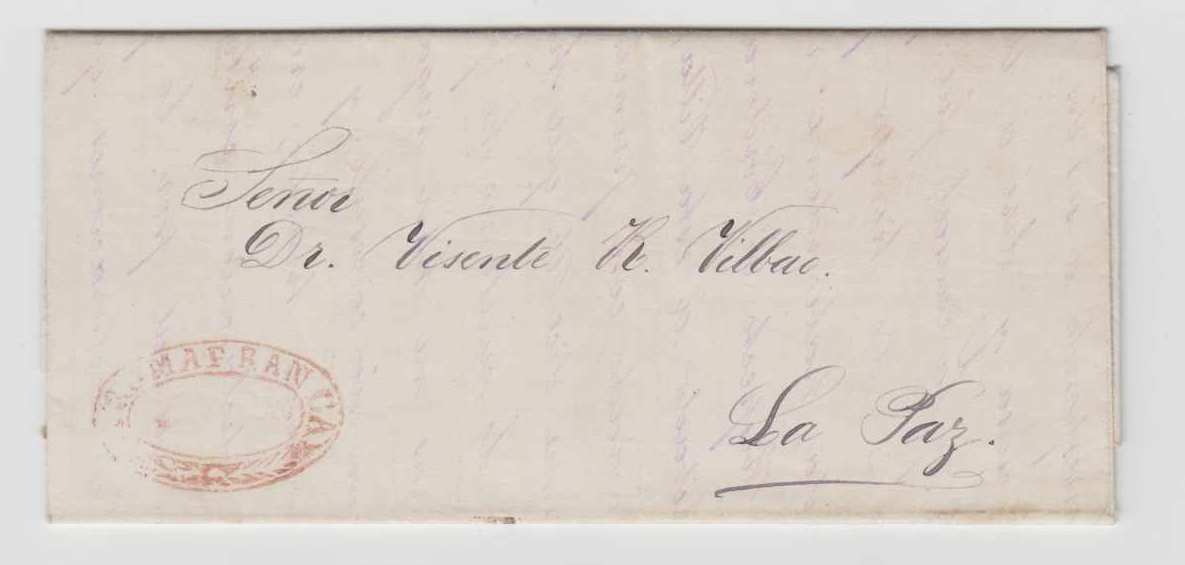 Señor
Dr. Visente R. Vilbao.
La Paz.
MAFRANCA